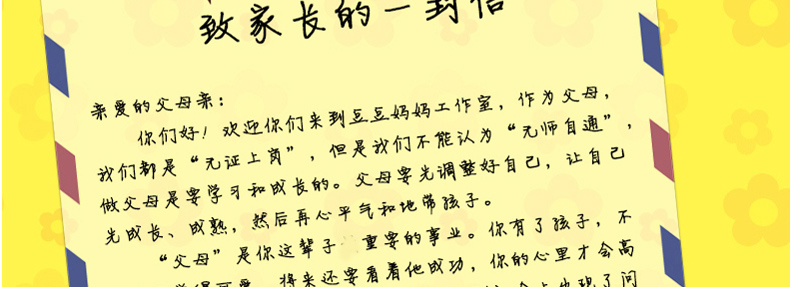 致家长的一封信
亲爱的父母亲：
你们好！欢迎你们来到豆豆妈妈工作室，作为父母，
我们都是“无证上岗”，但是我们不能认为“无师自通”，
做父母是要学习和成长的。父母要先调整好自己，让自己
先成长、成熟，然后再心平气和地带孩子。
“父母”是你这辈子 重要的事业。你有了孩子，不
将来还要看着他成功，你的心里才会高
现了问